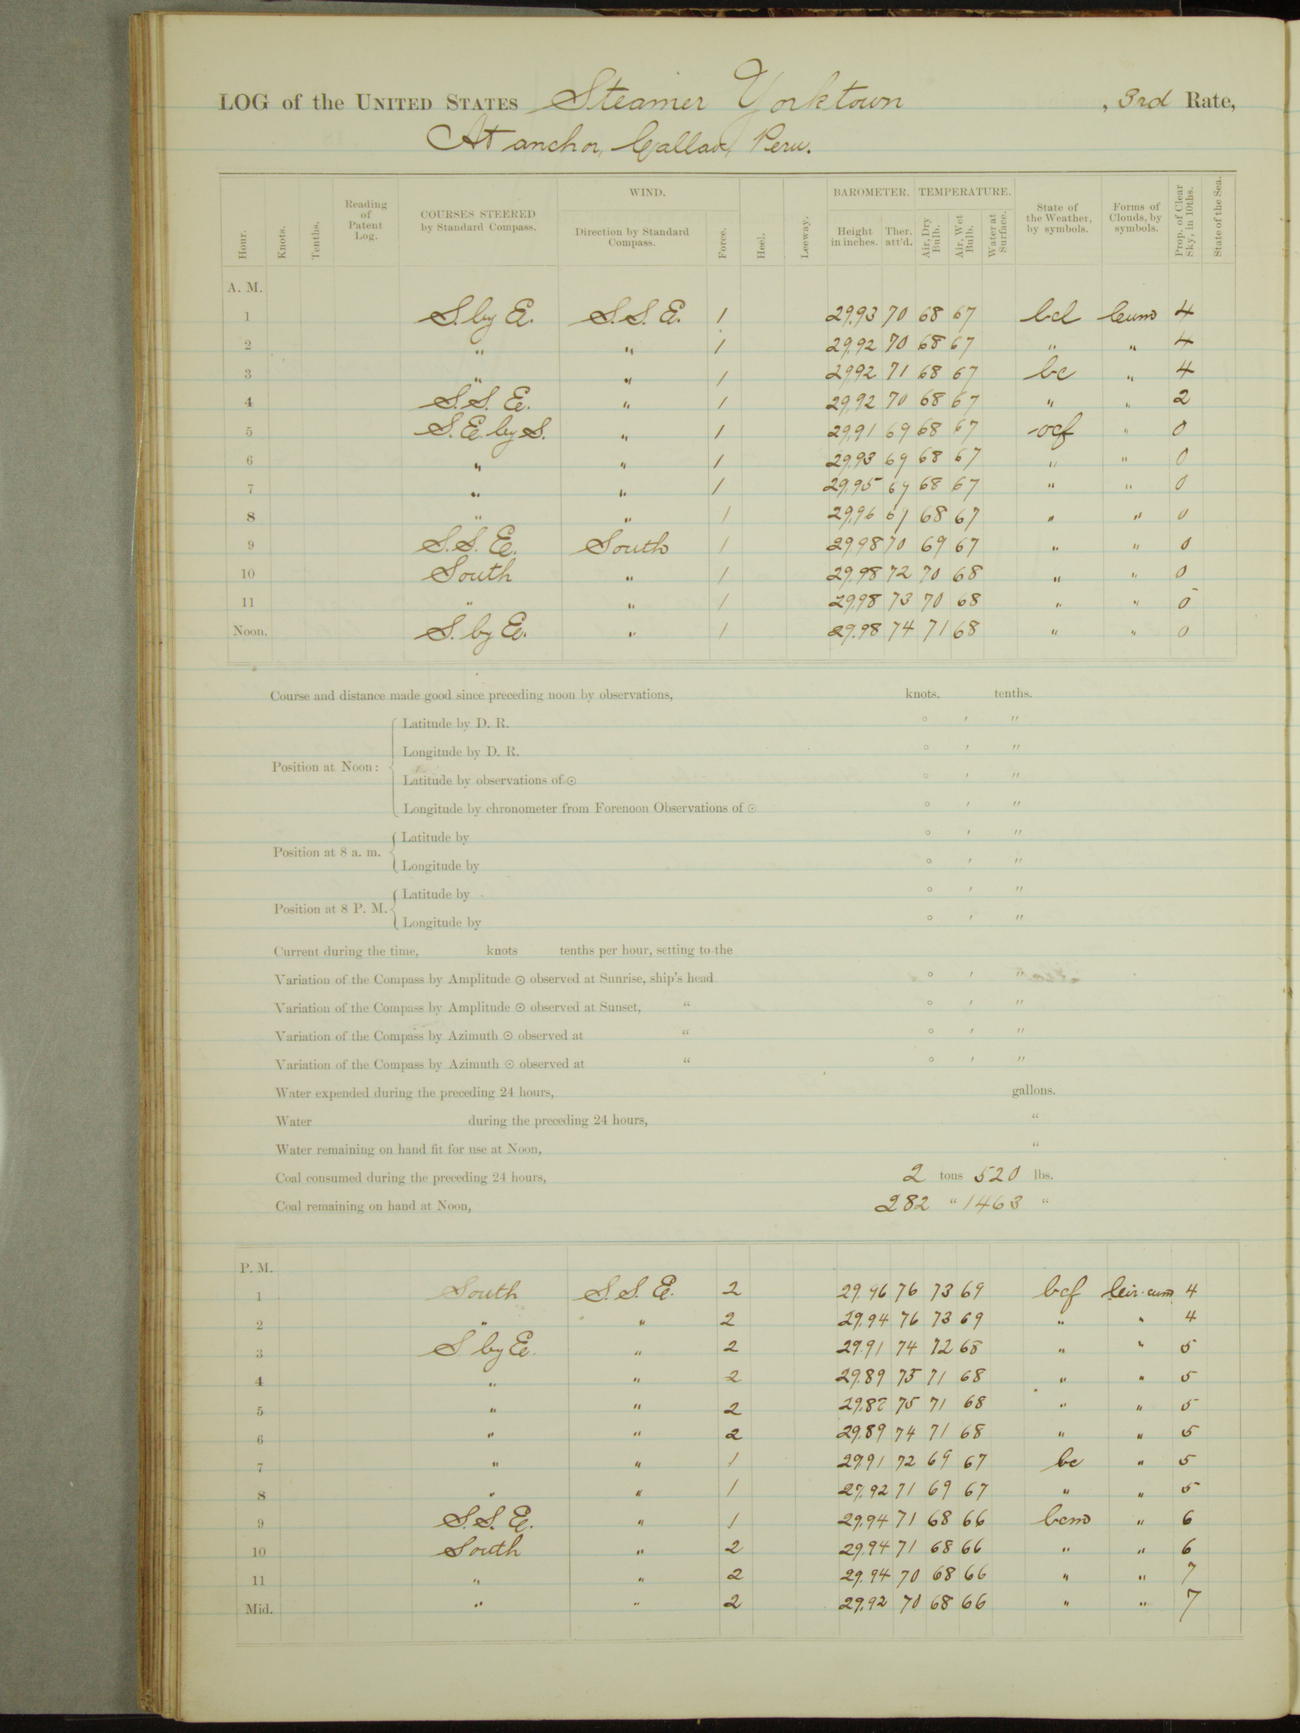 LOG of the UNITED STATES Steamer Yorktown, 3rd Rate,
At anchor, Callao, Peru.
Hour. Knots. Tenths. Reading of Patent Log. COURSES STEERED by Standard Compass. WIND. Direction by Standard Compass. Force. Heel. Leeway. BAROMETER. Height in inches. Ther. att'd. TEMPERATURE. Air, Dry Bulb. Air, Wet Bulb. Water at Surface. State of the Weather, by symbols. Forms of Clouds, by symbols. Prop. of Clear Sky, in 10ths. State of the Sea.
A. M.
1 S. by E. S. S. E. 1 29.93 70 68 67 bcd Cum 4
2 " " 1 29.92 70 68 67 " " 4
3 " " 1 29.92 71 68 67 bc " 4
4 S. S. E. " 1 29.92 70 68 67 " " 2
5 S. E. by S. " 1 29.91 69 68 67 ocf " 0
6 " " 1 29.93 69 68 67 " " 0
7 " " 1 29.95 69 68 67 " " 0
8 " " 1 29.96 68 67 " " 0
9 S. S. E. South 1 29.98 70 69 67 " " 0
10 South " 1 29.98 72 70 68 " " 0
11 " " 1 29.98 73 70 68 " " 0
Noon. S. by E. " 1 29.98 74 71 68 " " 0
Course and distance made good since preceding noon by observations, knots. tenths.
Position at Noon: Latitude by D. R. ° ′ ″
Longitude by D. R. ° ′ ″
Latitude by observations of ☉ ° ′ ″
Longitude by chronometer from Forenoon Observations of ☉ ° ′ ″
Position at 8 a. m. Latitude by ° ′ ″
Longitude by ° ′ ″
Position at 8 P. M. Latitude by ° ′ ″
Longitude by ° ′ ″
Current during the time, knots tenths per hour, setting to the
Variation of the Compass by Amplitude ☉ observed at Sunrise, ship's head ° ′ ″
Variation of the Compass by Amplitude ☉ observed at Sunset, " ° ′ ″
Variation of the Compass by Azimuth ☉ observed at " ° ′ ″
Variation of the Compass by Azimuth ☉ observed at " ° ′ ″
Water expended during the preceding 24 hours, gallons.
Water during the preceding 24 hours, "
Water remaining on hand fit for use at Noon, "
Coal consumed during the preceding 24 hours, 2 tons 520 lbs.
Coal remaining on hand at Noon, 282 " 1463 "
P. M.
1 South S. S. E. 2 29.96 76 73 69 bcf Cir-cum 4
2 " " 2 29.94 76 73 69 " " 4
3 S by E. " 2 29.91 74 72 68 " " 5
4 " " 2 29.89 75 71 68 " " 5
5 " " 2 75 71 68 " " 5
6 " " 2 29.89 74 71 68 " " 5
7 " " 1 29.91 72 69 67 bc " 5
8 " " 1 29.92 71 69 67 " " 5
9 S. S. E. " 1 29.94 71 68 66 bcm " 6
10 South " 2 29.94 71 68 66 " " 6
11 " " 2 29.94 70 68 66 " " 7
Mid. " " 2 29.92 70 68 66 " " 7